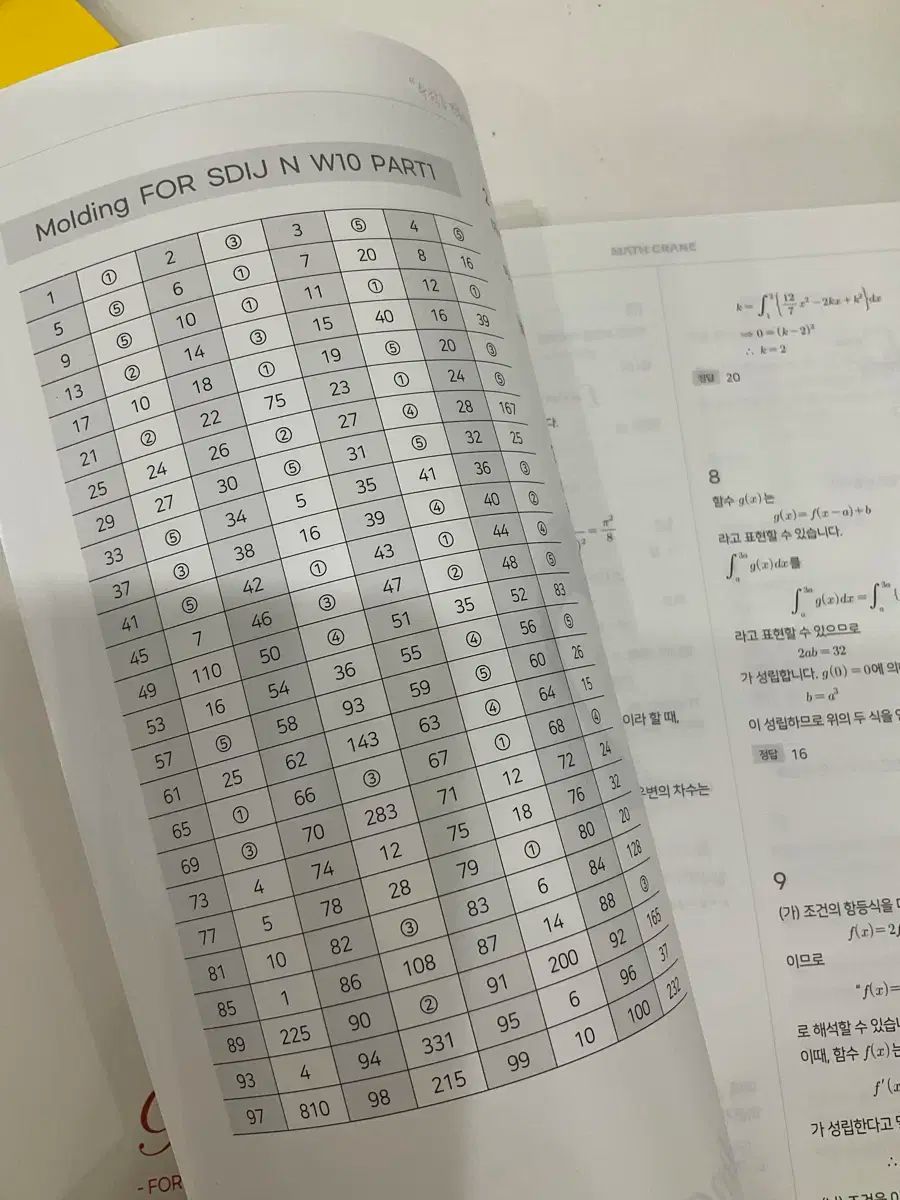 Molding FOR SDIJ N W10 PART1
1 ① 2 ③ 3 ⑤ 4 ⑤
5 ⑤ 6 ① 7 20 8 16
9 ⑤ 10 ① 11 ① 12 ①
13 ② 14 ③ 15 40 16 39
17 10 18 ① 19 ⑤ 20 ③
21 ② 22 75 23 ① 24 ⑤
25 24 26 ② 27 ④ 28 167
29 27 30 ⑤ 31 ⑤ 32 25
33 ⑤ 34 5 35 41 36 ③
37 ③ 38 16 39 ④ 40 ②
41 ⑤ 42 ① 43 ① 44 ④
45 7 46 ③ 47 ② 48 ⑤
49 110 50 ④ 51 35 52 83
53 16 54 36 55 ④ 56 ⑤
57 ⑤ 58 93 59 ⑤ 60 26
61 25 62 143 63 ④ 64 15
65 ① 66 ③ 67 ① 68 ④
69 ③ 70 283 71 12 72 24
73 4 74 12 75 18 76 32
77 5 78 28 79 ① 80 20
81 10 82 ③ 83 6 84 128
85 1 86 108 87 14 88 ③
89 225 90 ② 91 200 92 165
93 4 94 331 95 6 96 37
97 810 98 215 99 10 100 232
- FOR
다.
)² = π²/8
이라 할 때,
우변의 차수는
MATH CRANE
k = ∫₁² {12/7 x² − 2kx + k²}dx
⇒ 0 = (k−2)²
∴ k = 2
정답 20
8
함수 g(x)는
g(x) = f(x−a)+b
라고 표현할 수 있습니다.
∫ₐ³ᵃ g(x)dx를
∫ₐ³ᵃ g(x)dx = ∫ₐ³ᵃ {
라고 표현할 수 있으므로
2ab = 32
가 성립합니다. g(0) = 0에 의
b = a³
이 성립하므로 위의 두 식을
정답 16
9
(가) 조건의 항등식을
f(x) = 2
이므로
"f(x) =
로 해석할 수 있습니
이때, 함수 f(x)는
f′(x
가 성립한다고
∴